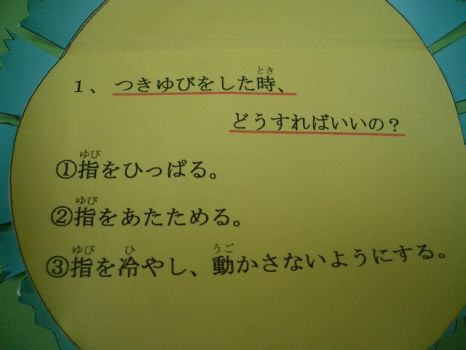 1、つきゆびをした時、
どうすればいいの？
①指をひっぱる。
②指をあたためる。
③指を冷やし、動かさないようにする。